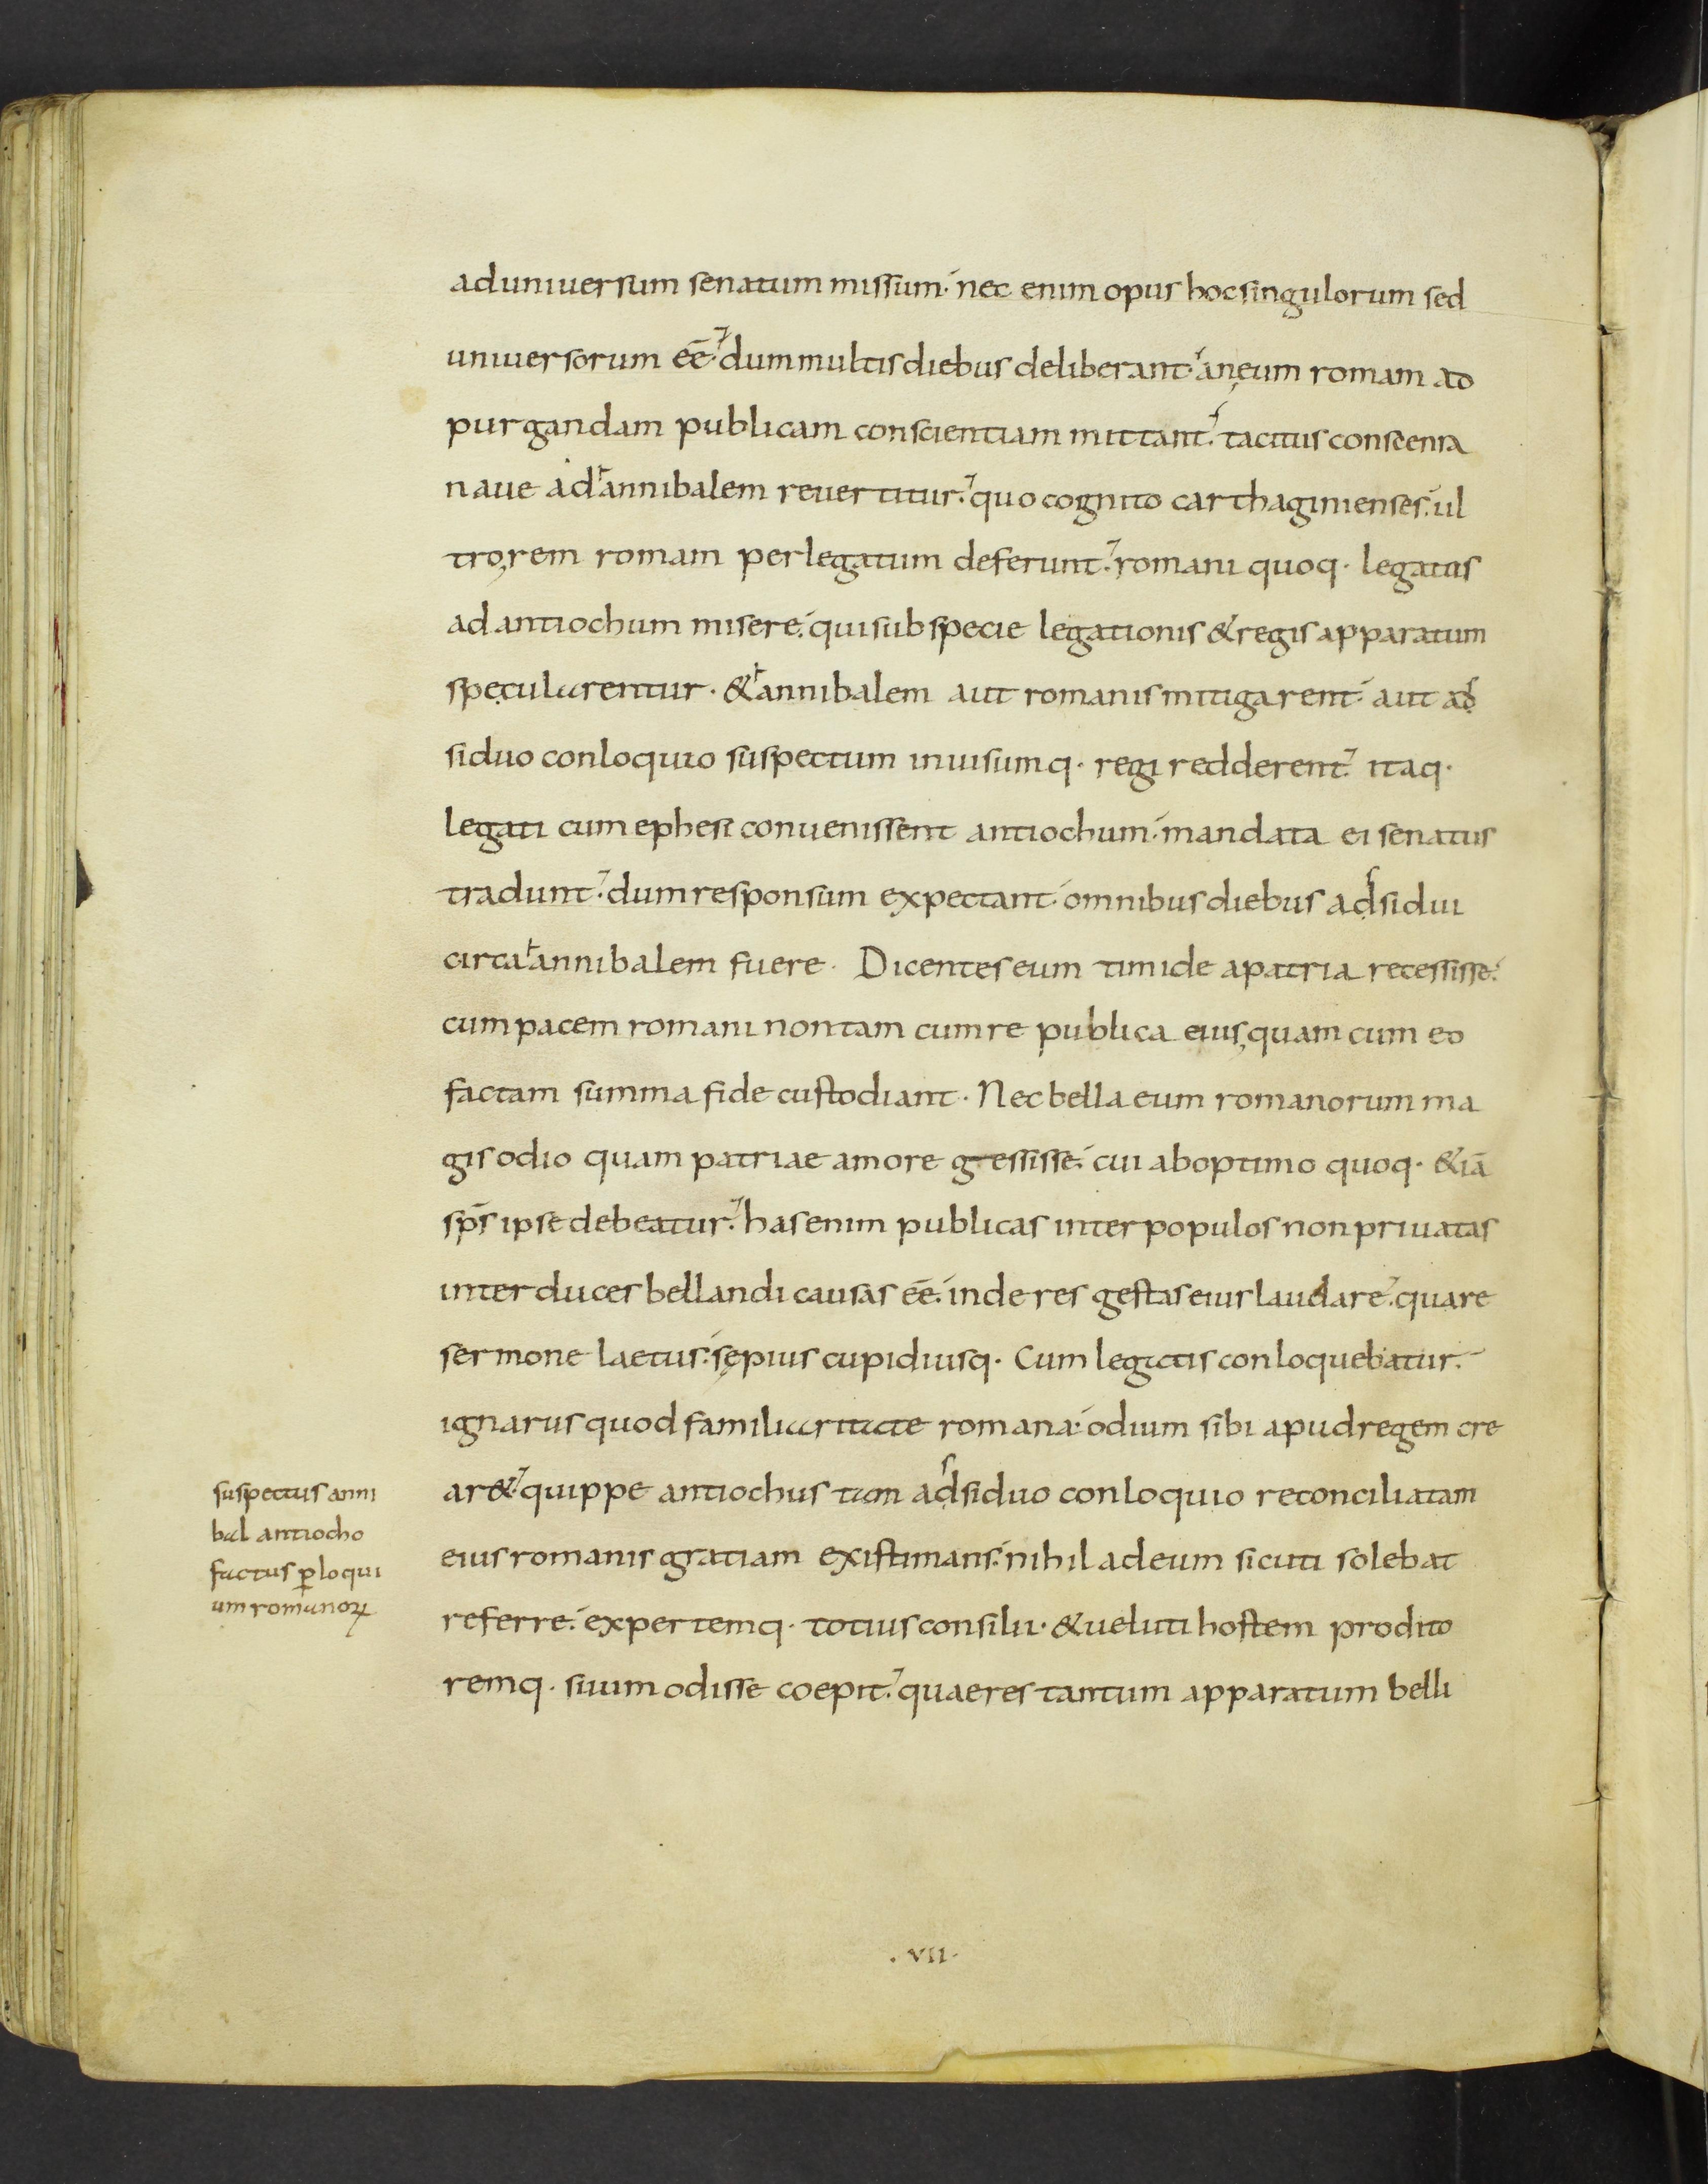 ad uniuersum senatum missum· nec enim opus hoc singulorum sed
uniuersorum eē· dum multis diebus deliberant· an eum romam ad
purgandam publicam conscientiam mittant· tacitus conscensa
naue ad annibalem reuertitur· quo cognito carthaginienses· ul
tro, rem romam per legatum deferunt· romani quoq· legatus
ad antiochum misere· qui sub specie legationis & regis apparatum
specularentur· & annibalem aut romanis mitigarent· aut ad
siduo conloquio suspectum inuisumq· regi redderent· itaq·
legati cum ephesi conuenissent antiochum· mandata ei senatus
tradunt· dum responsum expectant· omnibus diebus adsidui
circa annibalem fuere· Dicentes eum timide a patria recessisse·
cum pacem romani non tam cum re publica eius, quam cum eo
factam summa fide custodiant· Nec bella eum romanorum ma
gis odio quam patriae amore gessisse· cui ab optimo quoq· &iā
sp̄s ipse debeatur· has enim publicas inter populos non priuatas
inter duces bellandi causas eē· inde res gestas eius laudare· quare
sermone laetus· sępius cupidiusq· Cum legatis conloquebatur·
ignarus quod familiaritate romana· odium sibi apud regem cre
ar&· quippe antiochus tam adsiduo conloquio reconciliatam
eius romanis gratiam existimans· nihil ad eum sicuti solebat
referre· expertemq· totius consilii· & ueluti hostem prodito
remq· suum odisse coepit· quae res tantum apparatum belli
suspectus anni
bal antiocho
factus ꝑ loqui
um romanoꝝ
·VII·